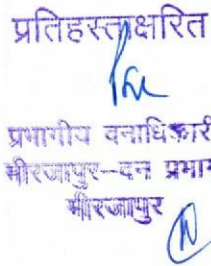 प्रतिहस्ताक्षरित
प्रभागीय वनाधिकारी
मीरजापुर-वन प्रभाग
मीरजापुर